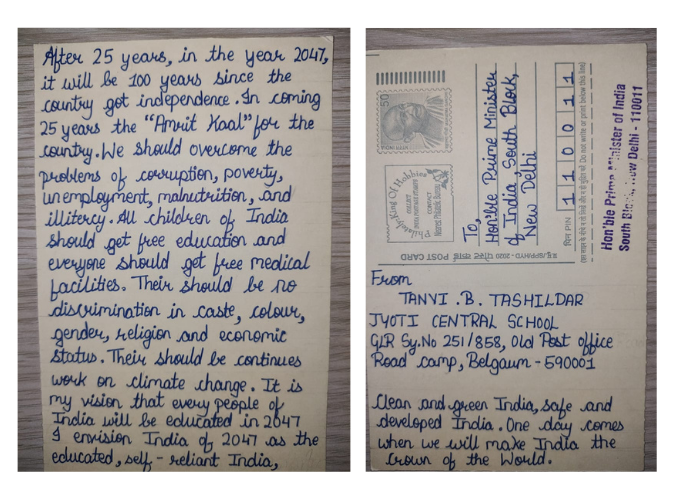 After 25 years, in the year 2047,
it will be 100 years since the
country got independence. In coming
25 years the "Amrit Kaal" for the
country. We should overcome the
problems of corruption, poverty,
unemployment, malnutrition, and
illitercy. All children of India
should get free education and
everyone should get free medical
facilities. Their should be no
discrimination in caste, colour,
gender, religion and economic
status. Their should be continues
work on climate change. It is
my vision that every people of
India will be educated in 2047
I envision India of 2047 as the
educated, self - reliant India,
50
Philately King Of Hobbies
CONTACT
Nearest Philatelic Bureau
To,
Hon'ble Prime Minister
of India, South Block,
New Delhi
पिन PIN 110011
Do not write or print below this line
Hon'ble Prime Minister of India
South Block, New Delhi - 110011
पोस्ट कार्ड POST CARD
From
TANVI .B. TASHILDAR
JYOTI CENTRAL SCHOOL
GLR Sy.No 251/858, Old Post office
Road camp, Belgaum - 590001
Clean and green India, safe and
developed India. One day comes
when we will make India the
Crown of the World.